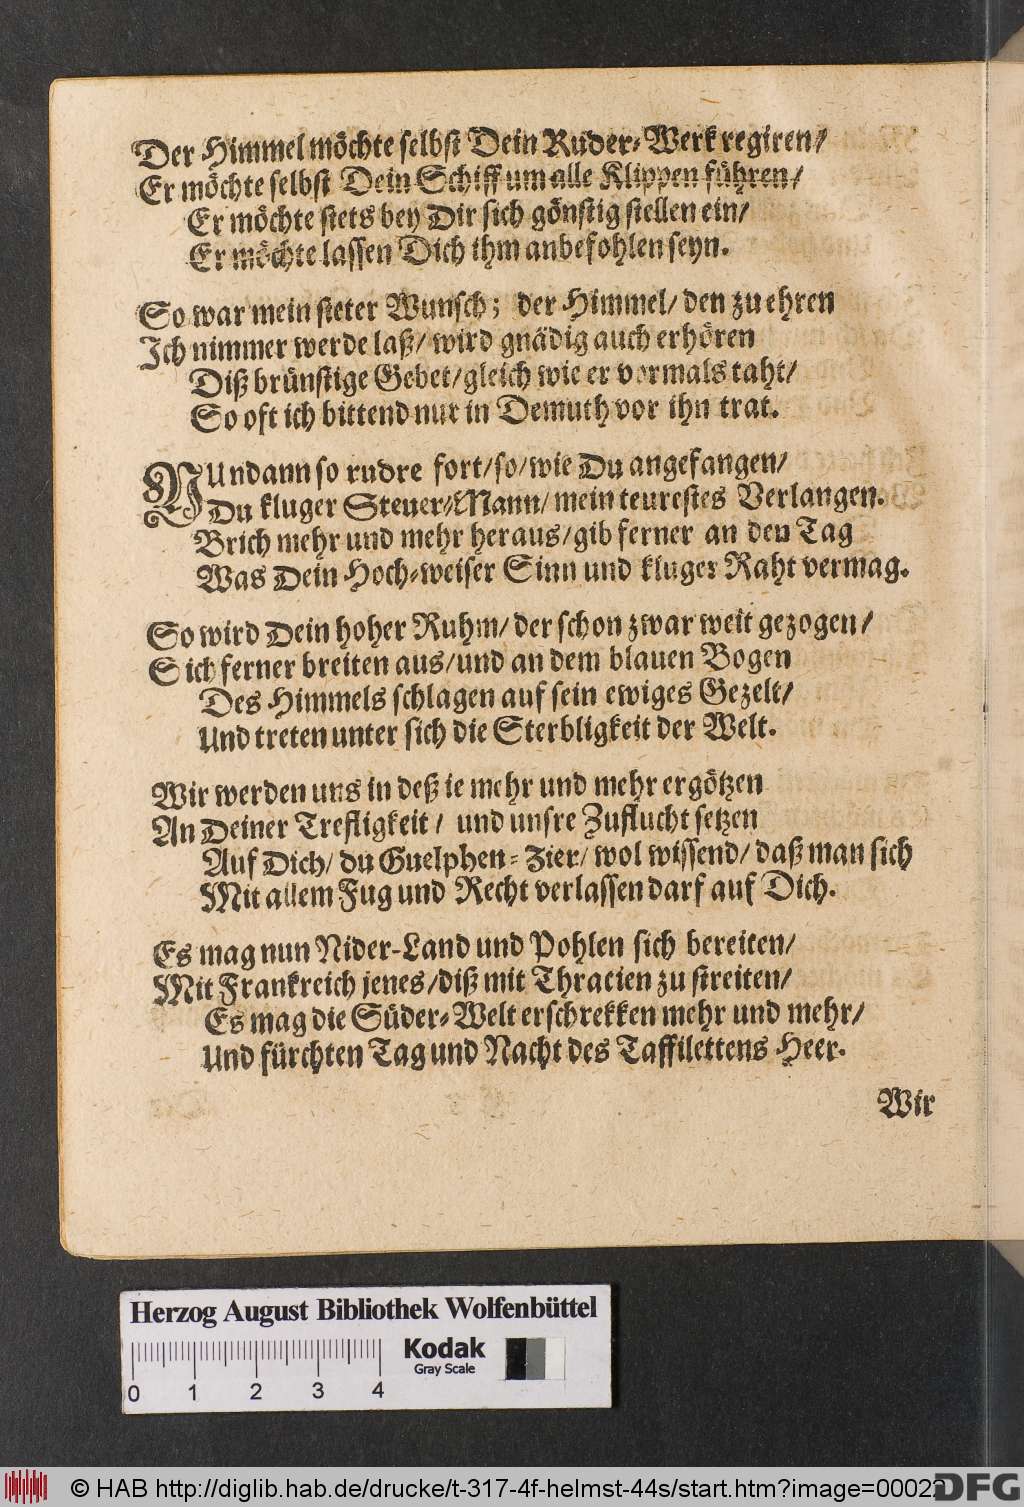 Der Himmel möchte selbst Dein Ruder-Werk regiren/
Er möchte selbst Dein Schiff um alle Klippen führen/
Er möchte stets bey Dir sich gönstig stellen ein/
Er möchte lassen Dich ihm anbefohlen seyn.
So war mein steter Wunsch; der Himmel/ den zu ehren
Ich nimmer werde laß/ wird gnädig auch erhören
Diß brünstige Gebet/ gleich wie er vormals taht/
So oft ich bittend nur in Demuth vor ihn trat.
NUn dann so rudre fort/ so/ wie Du angefangen/
Du kluger Steuer-Mann/ mein teurestes Verlangen.
Brich mehr und mehr heraus/ gib ferner an den Tag
Was Dein Hoch-weiser Sinn und kluger Raht vermag.
So wird Dein hoher Ruhm/ der schon zwar weit gezogen/
Sich ferner breiten aus/ und an dem blauen Bogen
Des Himmels schlagen auf sein ewiges Gezelt/
Und treten unter sich die Sterbligkeit der Welt.
Wir werden uns in deß ie mehr und mehr ergötzen
An Deiner Trefligkeit/ und unsre Zuflucht setzen
Auf Dich/ du Guelphen-Zier/ wol wissend/ daß man sich
Mit allem Fug und Recht verlassen darf auf Dich.
Es mag nun Nider-Land und Pohlen sich bereiten/
Mit Frankreich jenes/ diß mit Thracien zu streiten/
Es mag die Süder-Welt erschrekken mehr und mehr/
Und fürchten Tag und Nacht des Taffilettens Heer.
Wir
Herzog August Bibliothek Wolfenbüttel
Kodak
Gray Scale
0 1 2 3 4
© HAB http://diglib.hab.de/drucke/t-317-4f-helmst-44s/start.htm?image=00022
DFG